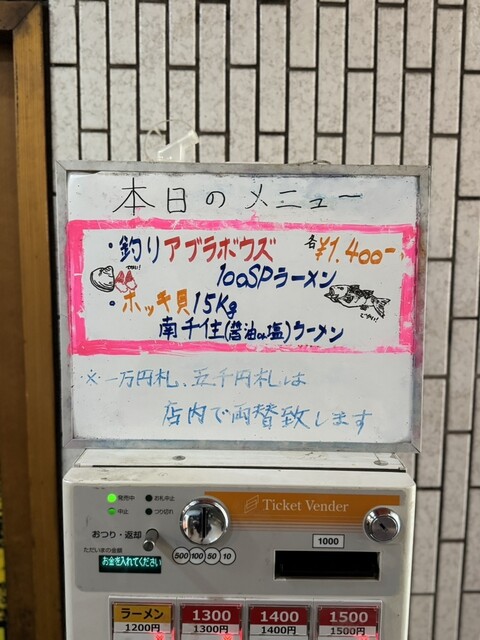 本日のメニュー
・釣りアブラボウズ 各¥1,400-
100SPラーメン
・ホッキ貝15Kg
南千住(醤油or塩)ラーメン
※一万円札、五千円札は
店内で両替致します
発売中 お札中止
中止 つり切れ
Ticket Vender
おつり・返却
ただいまの金額
お金を入れてください
500 100 50 10
1000
ラーメン 1300 1400 1500
1200円 1300円 1400円 1500円